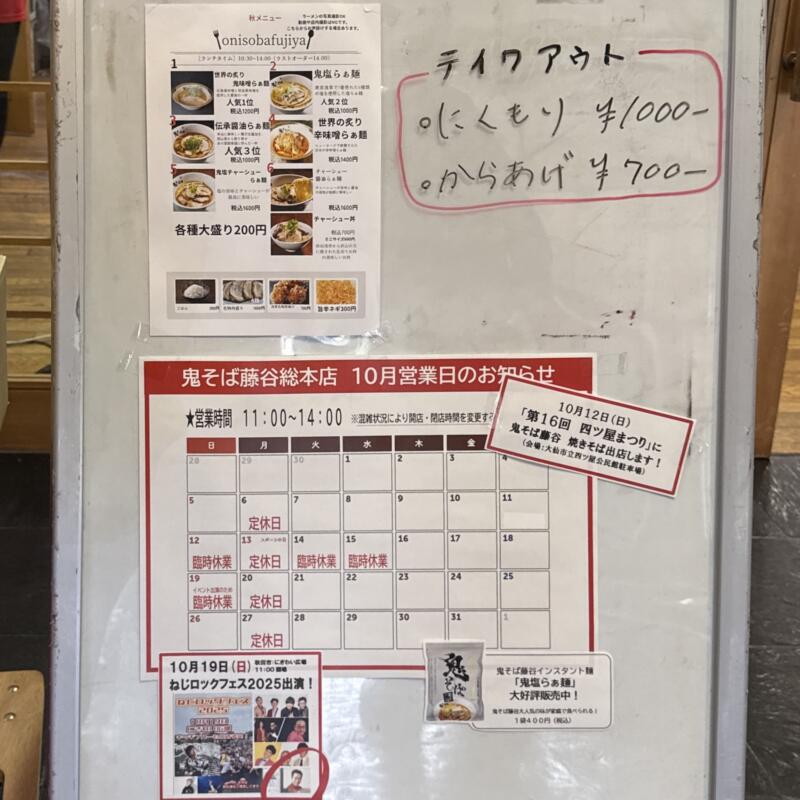 秋メニュー
ラーメンの写真撮影OK
動画や店内撮影はNGです。
こちらからお声掛けする場合あります。
onisobafujiya
[ランチタイム] 10:30~14:00(ラストオーダー14:00)
1
世界の炙り
鬼味噌らぁ麺
人気1位
税込1200円
2
鬼塩らぁ麺
人気2位
税込1000円
3
伝承醤油らぁ麺
人気3位
税込1000円
4
世界の炙り
辛味噌らぁ麺
税込1400円
5
鬼塩チャーシュー
らぁ麺
税込1600円
6
チャーシュー
醤油らぁ麺
税込1600円
チャーシュー丼
税込700円
各種大盛り200円
旨辛ネギ300円
テイクアウト
。にくもり ¥1000-
。からあげ ¥700-
鬼そば藤谷総本店 10月営業日のお知らせ
★営業時間 11:00~14:00 ※混雑状況により開店・閉店時間を変更する
10月12日(日)
「第16回 四ツ屋まつり」に
鬼そば藤谷 焼きそば出店します!
(会場:大仙市立四ツ屋公民館駐車場)
日 月 火 水 木 金
28 29 30 1 2 3 4
5 6 7 8 9 10 11
定休日
12 13 スポーツの日 14 15 16 17 18
臨時休業 定休日 臨時休業 臨時休業
19 20 21 22 23 24 25
イベント出演のため
臨時休業 定休日
26 27 28 29 30 31 1
定休日
10月19日(日) 秋田市:にぎわい広場
11:00開場
ねじロックフェス2025出演!
ねじロックフェス
2025
10月19日
鬼そば藤谷
鬼そば藤谷インスタント麺
「鬼塩らぁ麺」
大好評販売中!
鬼そば藤谷大人気の味が家庭で食べられる!
1袋400円(税込)